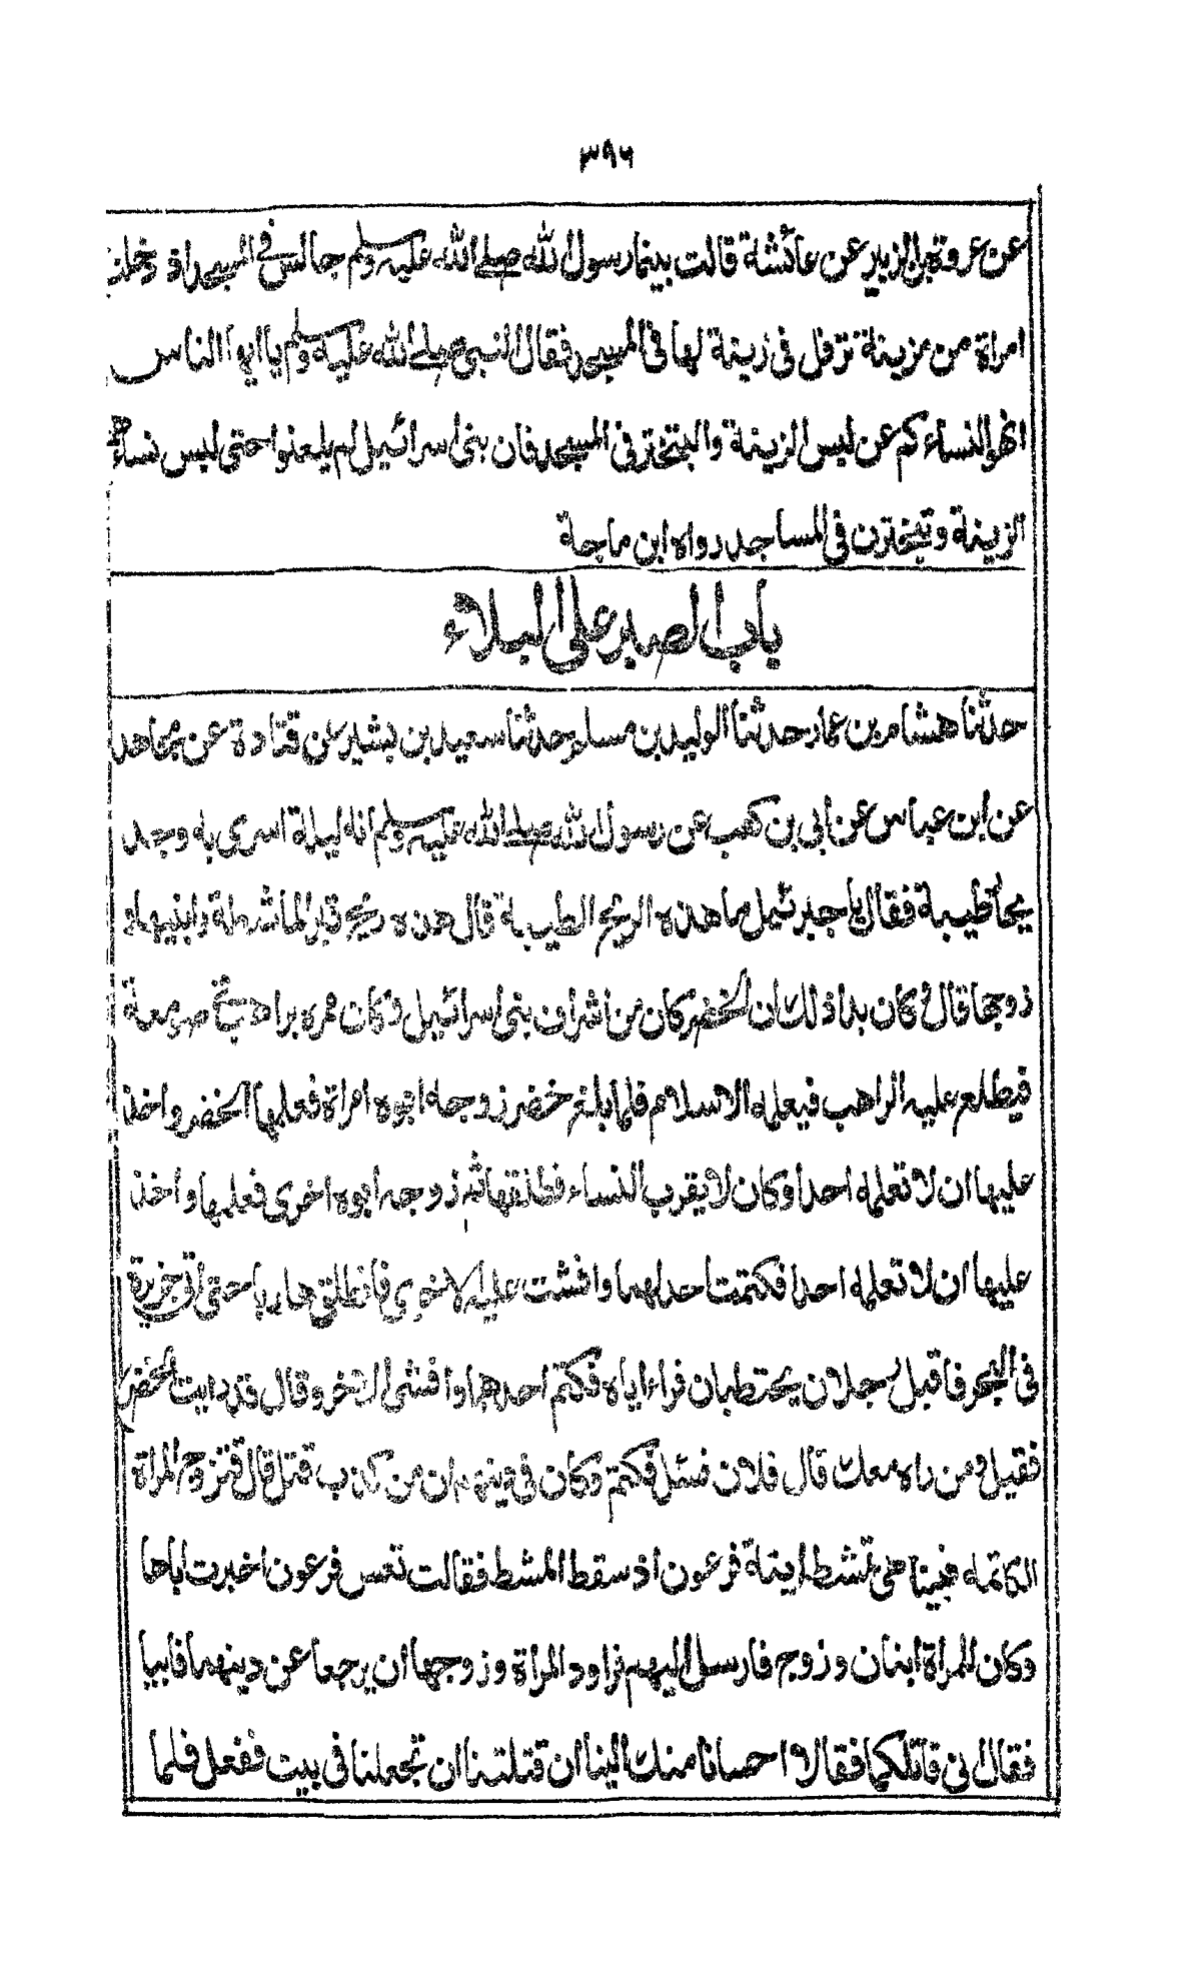 ٣٩٦
عن عروة بن الزبير عن عائشة قالت بينما رسول الله صلى الله عليه وسلم جالس في المسجد اذ دخلت
امراة من مزينة ترفل في زينة لها في المسجد فقال النبي صلى الله عليه وسلم يا ايها الناس
انهوا نساءكم عن لبس الزينة والتبختر في المسجد فان بني اسرائيل لم يلعنوا حتى لبس نساءهم
الزينة وتبخترن في المساجد رواه ابن ماجة
باب الصبر على البلاء
حدثنا هشام بن عمار حدثنا الوليد بن مسلم حدثنا سعيد بن بشير عن قتادة عن مجاهد
عن ابن عباس عن ابي بن كعب عن رسول الله صلى الله عليه وسلم انه ليلة اسري به وجد
ريحا طيبة فقال يا جبرئيل ما هذه الريح الطيبة قال هذه ريح قبر الماشطة وابنيها و
زوجها قال وكان بدا ذلك ان الخضر كان من اشراف بني اسرائيل وكان ممره براهب في صومعة
فيطلع عليه الراهب فيعلمه الاسلام فلما بلغ خضر زوجه ابوه امراة فعلمها الخضر واخذ
عليها ان لا تعلمه احدا وكان لا يقرب النساء فطلقها ثم زوجه ابوه اخرى فعلمها واخذ
عليها ان لا تعلمه احدا فكتمت احدهما وافشت عليه الاخرى فانطلق هاربا حتى اتى جزيرة
في البحر فاقبل رجلان يحتطبان فراءاياه فكتم احدهما وافشى الاخر وقال قد رايت الخضر
فقيل ومن راه معك قال فلان فسئل فكتم وكان في دينهم ان من كذب قتل قال فتزوج المراة
الكاتمة فبينا هي تمشط ابنة فرعون اذ سقط المشط فقالت تعس فرعون اخبرت اباها
وكان للمراة ابنان وزوج فارسل اليهم فراود المراة وزوجها ان يرجعا عن دينهما فابيا
فقال اني قاتلكما فقالا احسانا منك الينا ان قتلتنا ان تجعلنا في بيت ففعل فلما